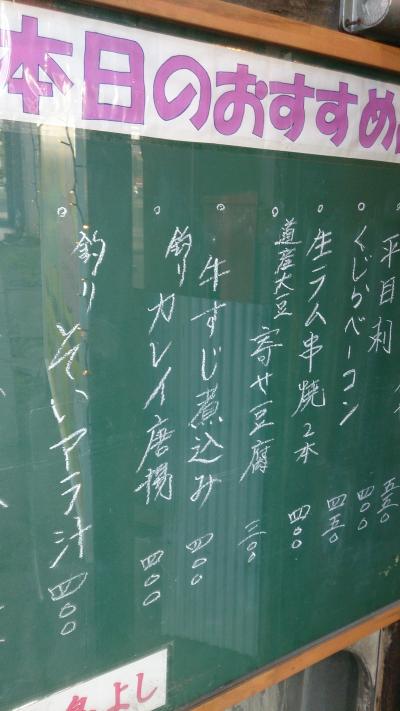 本日のおすすめ
五五〇
平目刺 四〇〇
くじらベーコン 四五〇
生ラム串焼2本 四〇〇
道産大豆 寄せ豆腐 三〇〇
牛すじ煮込み 四〇〇
釣りカレイ唐揚 四〇〇
釣りそいアラ汁 四〇〇
よし